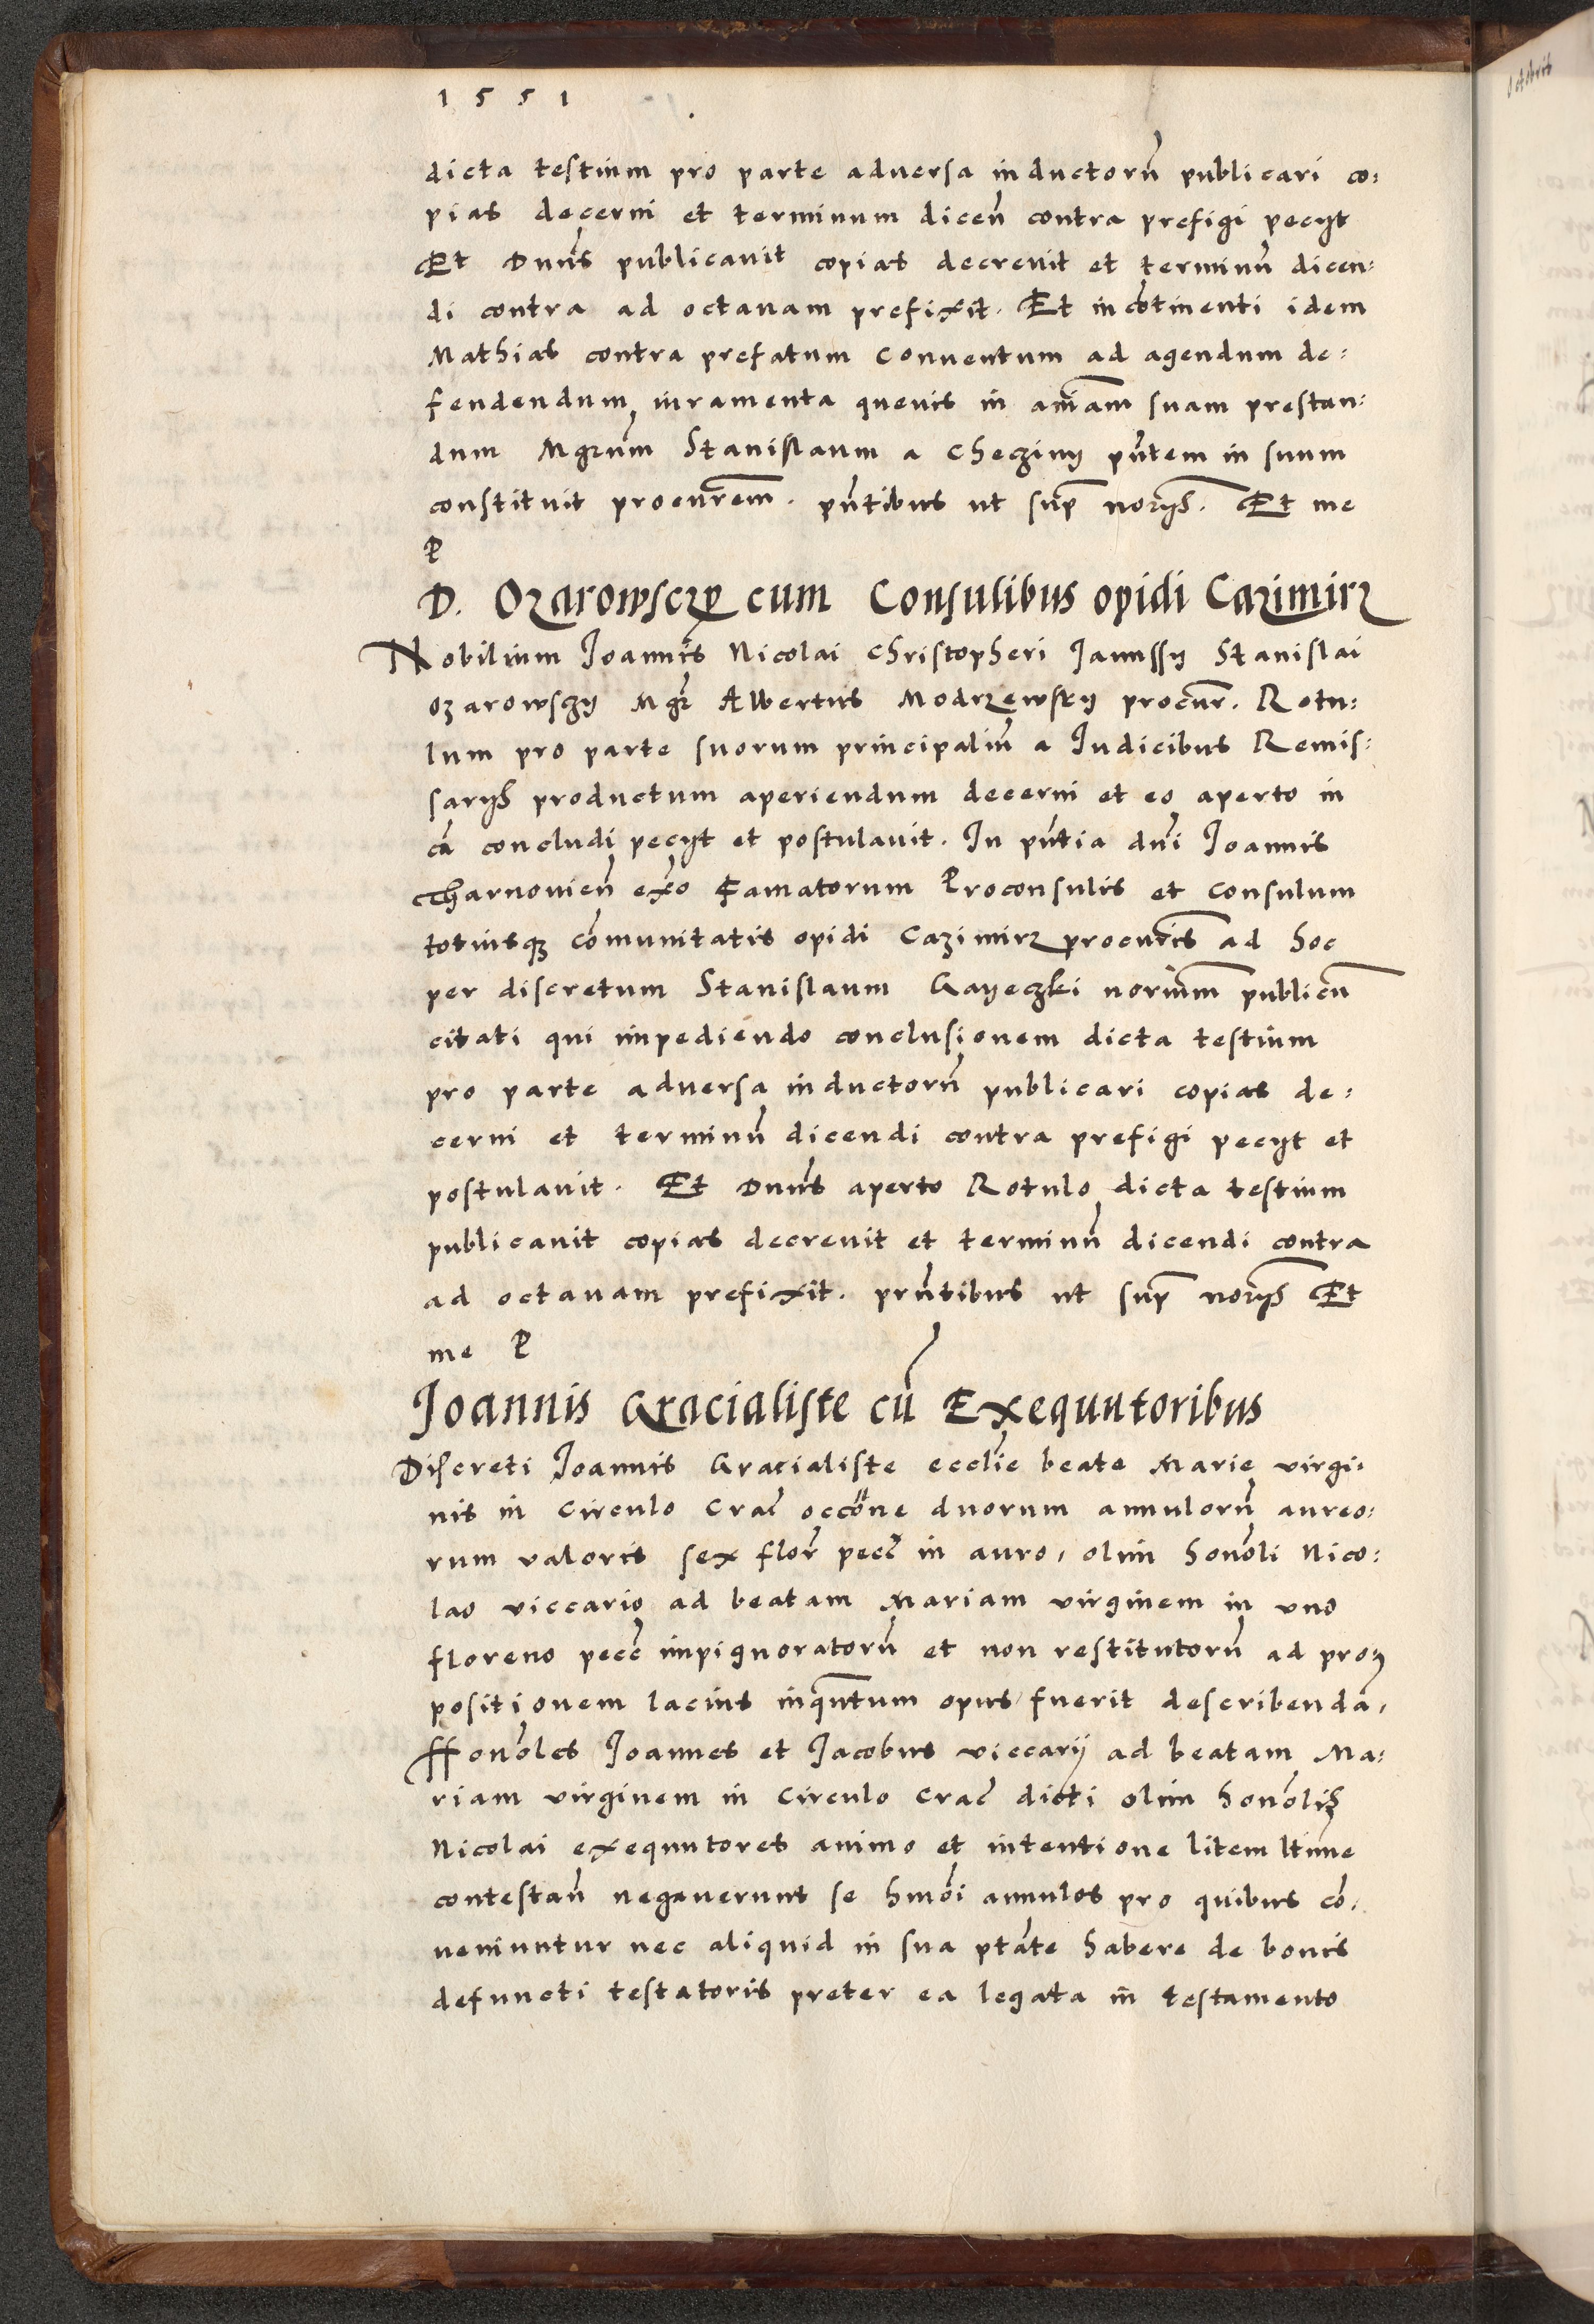 1551
dicta testium pro parte aduersa inductorũ publicari co:
pias decerni et terminum dicen̄ contra prefigi pecyt
Et Dnn̄s publicauit copias decreuit et terminũ dicen:
di contra ad octauam prefixit. Et incōtinenti idem
Mathias contra prefatum Conuentum ad agendum de:
fendendum, iuramenta queuis in ani͞am suam prestan:
dum Mgr̄um Stanislaum a Checziny pn̄tem in suum
constituit procur͞em. pn̄tibus ut sup͞ nor͞ys. Et me
P
D. Ozarowsczy cum Consulibus opidi Cazimirz
Nobilium Joannis Nicolai Christopheri Janussy Stanislai
ozarowsczy Mgr̄ Albertus Modrzewsky procur͞. Rotu:
lum pro parte suorum principaliũ a Judicibus Remis:
sarys productum aperiendum decerni et eo aperto in
cā concludi pecyt et postulauit. In pn̄tia dn̄i Joannis
Tharnouien̄ ex̄o Famatorum Proconsulis et Consulum
totiusq; cōmunitatis opidi Cazimirz procur͞is ad hoc
per discretum Stanislaum Gayeczki nori͞um publicũ
citati qui impediendo conclusionem dicta testium
pro parte aduersa inductorũ publicari copias de:
cerni et terminũ dicendi contra prefigi pecyt et
postulauit. Et Dnn̄s aperto Rotulo dicta testium
publicauit copias decreuit et terminũ dicendi contra
ad octauam prefixit. prn̄tibus ut sup͞ nor͞ys Et
me P
Joannis Gracialiste cũ Exequutoribus
Discreti Joannis Gracialiste eccl̄ie beate Marie virgi:
nis in Circulo Crac̄ occōne duorum annulorũ aureo:
rum valoris sex flor̄ pecc̄ in auro, olim honōli Nico:
lao viccario ad beatam Mariam virginem in vno
floreno pecc̄ impignoratorũ et non restitutorũ ad pro:
positionem lacius inqu͞antum opus fuerit describendā,
Honōles Joannes et Jacobus viccarij ad beatam Ma:
riam virginem in Circulo Crac̄ dicti olim honōlis
Nicolai exequutores animo et intentione litem lt̄ime
contestan̄ negauerunt se hmōi annulos pro quibus cō:
ueniuntur nec aliquid in sua ptāte habere de bonis
defuncti testatoris preter ea legata in testamento